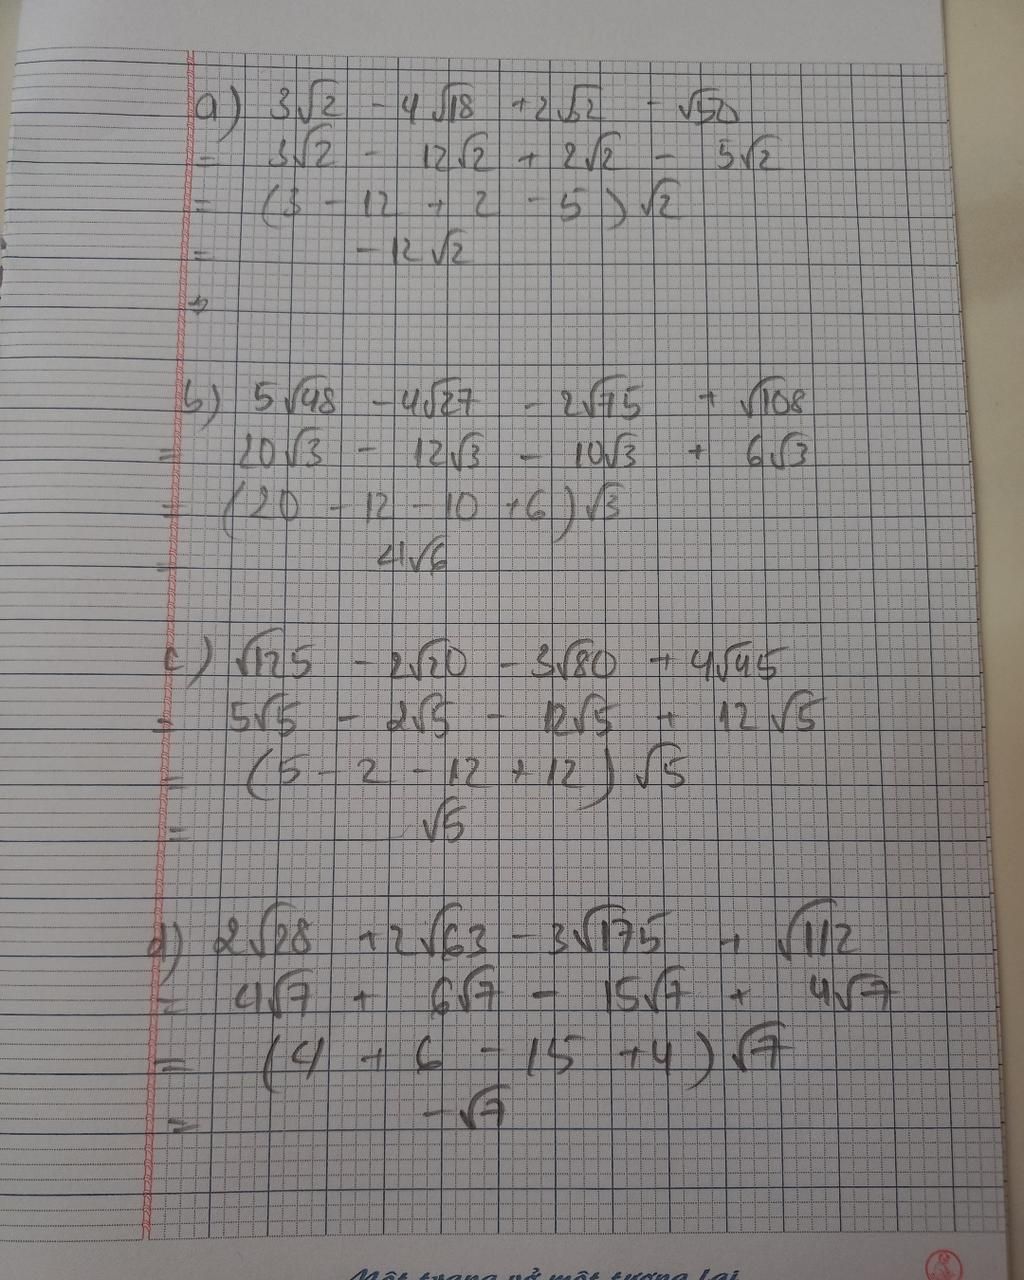 a) 3√2 - 4√18 + 2√32 - √50
= 3√2 - 12√2 + 2√2 - 5√2
= (3 - 12 + 2 - 5)√2
= -12√2
→
b) 5√48 - 4√27 - 2√75 + √108
= 20√3 - 12√3 - 10√3 + 6√3
= (20 - 12 - 10 + 6)√3
= 4√6
c) √125 - 2√20 - 3√80 + 4√45
= 5√5 - 2√5 - 12√5 + 12√5
= (5 - 2 - 12 + 12)√5
= √5
d) 2√28 + 2√63 - 3√175 + √112
= 4√7 + 6√7 - 15√7 + 4√7
= (4 + 6 - 15 + 4)√7
= -√7
Một trang vở một tương lai